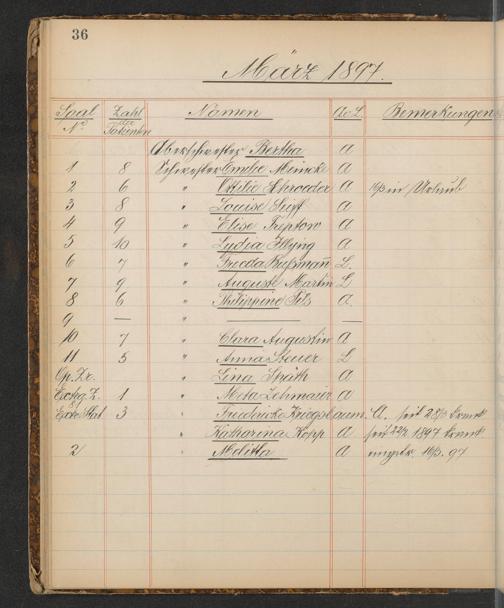 36
März 1897.
Saal No. Zahl der Patienten Namen A.o.L. Bemerkungen
Oberschwester Bertha A
1 8 Schwester Emilie Meincke A
2 6 " Ottilie Schroeder A in Urlaub
3 8 " Louise A
4 9 " Elise Treptow A
5 10 " Lydia A
6 7 " Frieda L.
7 9 " Auguste Martin L
8 6 " Philippine Pils A.
9 — " — —
10 7 " Clara Augustin A
11 5 " Anna Steuer L
Op. Zr. " Lina Späth A
Extrg. Z. 1 " Meta Lehmair A
3 " Friedericke Kriegsbaum. A. seit krank
" Katharina Kopp A seit 22/2 1897 krank
2/ " Melitta A 97